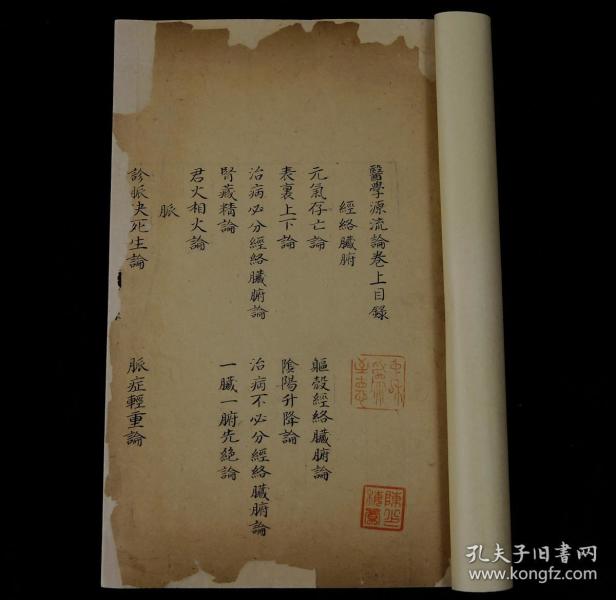 醫學源流論卷上目錄
經絡臟腑
元氣存亡論
軀殼經絡臟腑論
表裏上下論
陰陽升降論
治病必分經絡臟腑論
治病不必分經絡臟腑論
腎藏精論
一臟一腑先絕論
君火相火論
脈
診脈决死生論
脈症輕重論
孔夫子旧书网
www.kongfz.com